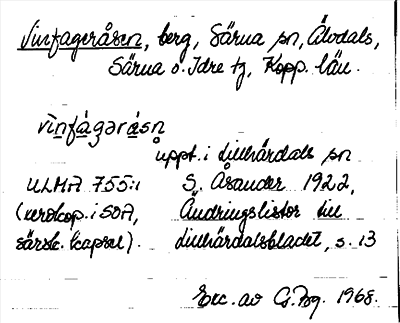 Vinfageråsen, berg, Särna sn, Älvdals,
Särna o. Idre tg, Kopp. län.
vìnfágəråsn
uppt. i Lillhärdals sn
ULMA 755:1 S. Åsander 1922,
(xerokop. i SOA, Ändringslistor till
särsk. kapsel). Lillhärdalsbladet, s. 13
Exc. av G. Pog. 1968.